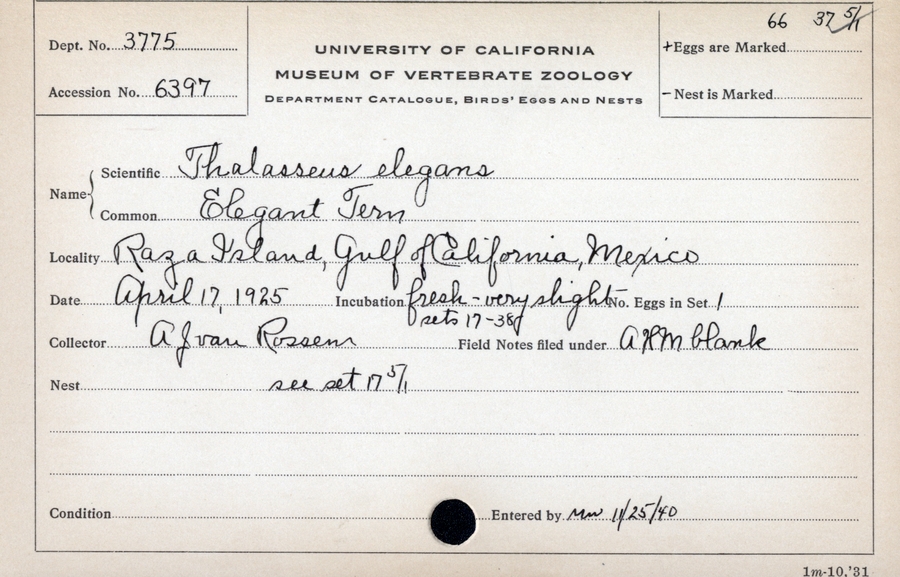 66 37 5/1
Dept. No. 3775
UNIVERSITY OF CALIFORNIA
+Eggs are Marked
MUSEUM OF VERTEBRATE ZOOLOGY
Accession No. 6397
DEPARTMENT CATALOGUE, BIRDS' EGGS AND NESTS
-Nest is Marked
Name
Scientific Thalasseus elegans
Common Elegant Tern
Locality Raza Island, Gulf of California, Mexico
Date April 17, 1925 Incubation fresh - very slight No. Eggs in Set 1
sets 17-38
Collector A J van Rossem Field Notes filed under A H M blank
Nest see set 17 5/1
Condition Entered by mw 11/25/40
1m-10,'31